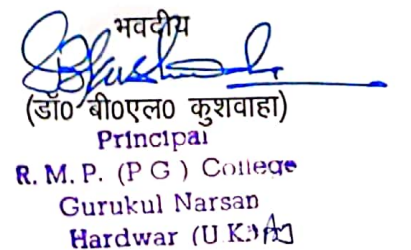 भवदीय
(डॉ0 बी0एल0 कुशवाहा)
Principal
R. M. P. (P G ) College
Gurukul Narsan
Hardwar (U.K.)